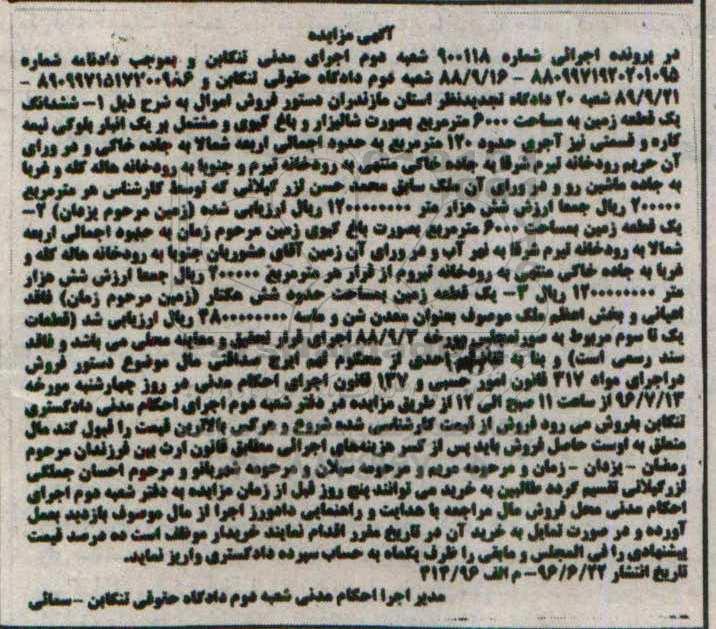 آگهی مزایده
در پرونده اجرائی شماره ۹۰۰۱۱۸ شعبه دوم اجرای مدنی تنکابن و بموجب دادنامه شماره
۸۸۰۹۹۷۱۹۲۰۲۰۱۰۹۵ - ۸۸/۹/۱۶ شعبه دوم دادگاه حقوقی تنکابن و ۸۹۰۹۹۷۱۵۱۷۲۰۰۹۸۶ -
۸۹/۹/۲۱ شعبه ۲۰ دادگاه تجدیدنظر استان مازندران دستور فروش اموال به شرح ذیل ۱- ششدانگ
یک قطعه زمین به مساحت ۶۰۰۰ مترمربع بصورت شالیزار و باغ کیوی و مشتمل بر یک انبار بلوکی نیمه
کاره و قسمتی نیز آجری حدود ۱۲۰ مترمربع به حدود اجمالی اربعه شمالا به جاده خاکی و در ورای
آن حریم رودخانه تیرم شرقا به جاده خاکی منتهی به رودخانه تیرم و جنوبا به رودخانه هاله کله و غربا
به جاده ماشین رو و در ورای آن ملک سابق محمد حسن لزر گیلانی که توسط کارشناس هر مترمربع
۲۰۰۰۰۰ ریال جمعا ارزش شش هزار متر ۱۲۰۰۰۰۰۰۰۰ ریال ارزیابی شده (زمین مرحوم یزدان) ۲-
یک قطعه زمین بمساحت ۶۰۰۰ مترمربع بصورت باغ کیوی زمین مرحوم زمان به حدود اجمالی اربعه
شمالا به رودخانه تیرم شرقا به نهر آب و در ورای آن زمین آقای عشوریان جنوبا به رودخانه هاله کله و
غربا به جاده خاکی منتهی به رودخانه تیروم از قرار هر مترمربع ۲۰۰۰۰۰ ریال جمعا ارزش شش هزار
متر ۱۲۰۰۰۰۰۰۰۰ ریال ۳- یک قطعه زمین بمساحت حدود شش هکتار (زمین مرحوم زمان) فاقد
اعیانی و بخش اعظم ملک موصوف بعنوان معدن شن و ماسه ۴۸۰۰۰۰۰۰۰۰ ریال ارزیابی شد (قطعات
یک تا سوم مربوط به صورتمجلس مورخه ۸۸/۹/۲ اجرای قرار تحقیق و معاینه محلی می باشد و فاقد
سند رسمی است) و بنا به تقاضای احدی از محکوم لهم ایرج صداقتی مال موضوع دستور فروش
دراجرای مواد ۳۱۷ قانون امور حسبی و ۱۳۷ قانون اجرای احکام مدنی در روز چهارشنبه مورخه
۹۶/۷/۱۳ از ساعت ۱۱ صبح الی ۱۲ از طریق مزایده در دفتر شعبه دوم اجرای احکام مدنی دادگستری
تنکابن بفروش می رود فروش از قیمت کارشناسی شده شروع و هرکس بالاترین قیمت را قبول کند مال
متعلق به اوست حاصل فروش باید پس از کسر هزینه‌های اجرائی مطابق قانون ارث بین فرزندان مرحوم
رمضان - یزدان - زمان و مرحومه مریم و مرحومه سبلان و مرحومه شهربانو و مرحوم احسان جملگی
لزرگیلانی تقسیم گردد طالبین به خرید می توانند پنج روز قبل از زمان مزایده به دفتر شعبه دوم اجرای
احکام مدنی محل فروش مال مراجعه با هدایت و راهنمایی دادورز اجرا از مال موصوف بازدید بعمل
آورده و در صورت تمایل به خرید آن در تاریخ مقرر اقدام نمایند خریدار موظف است ده درصد قیمت
پیشنهادی را فی المجلس و مابقی را ظرف یکماه به حساب سپرده دادگستری واریز نماید.
تاریخ انتشار ۹۶/۶/۲۲- م الف ۳۱۳/۹۶
مدیر اجرا احکام مدنی شعبه دوم دادگاه حقوقی تنکابن - سمائی